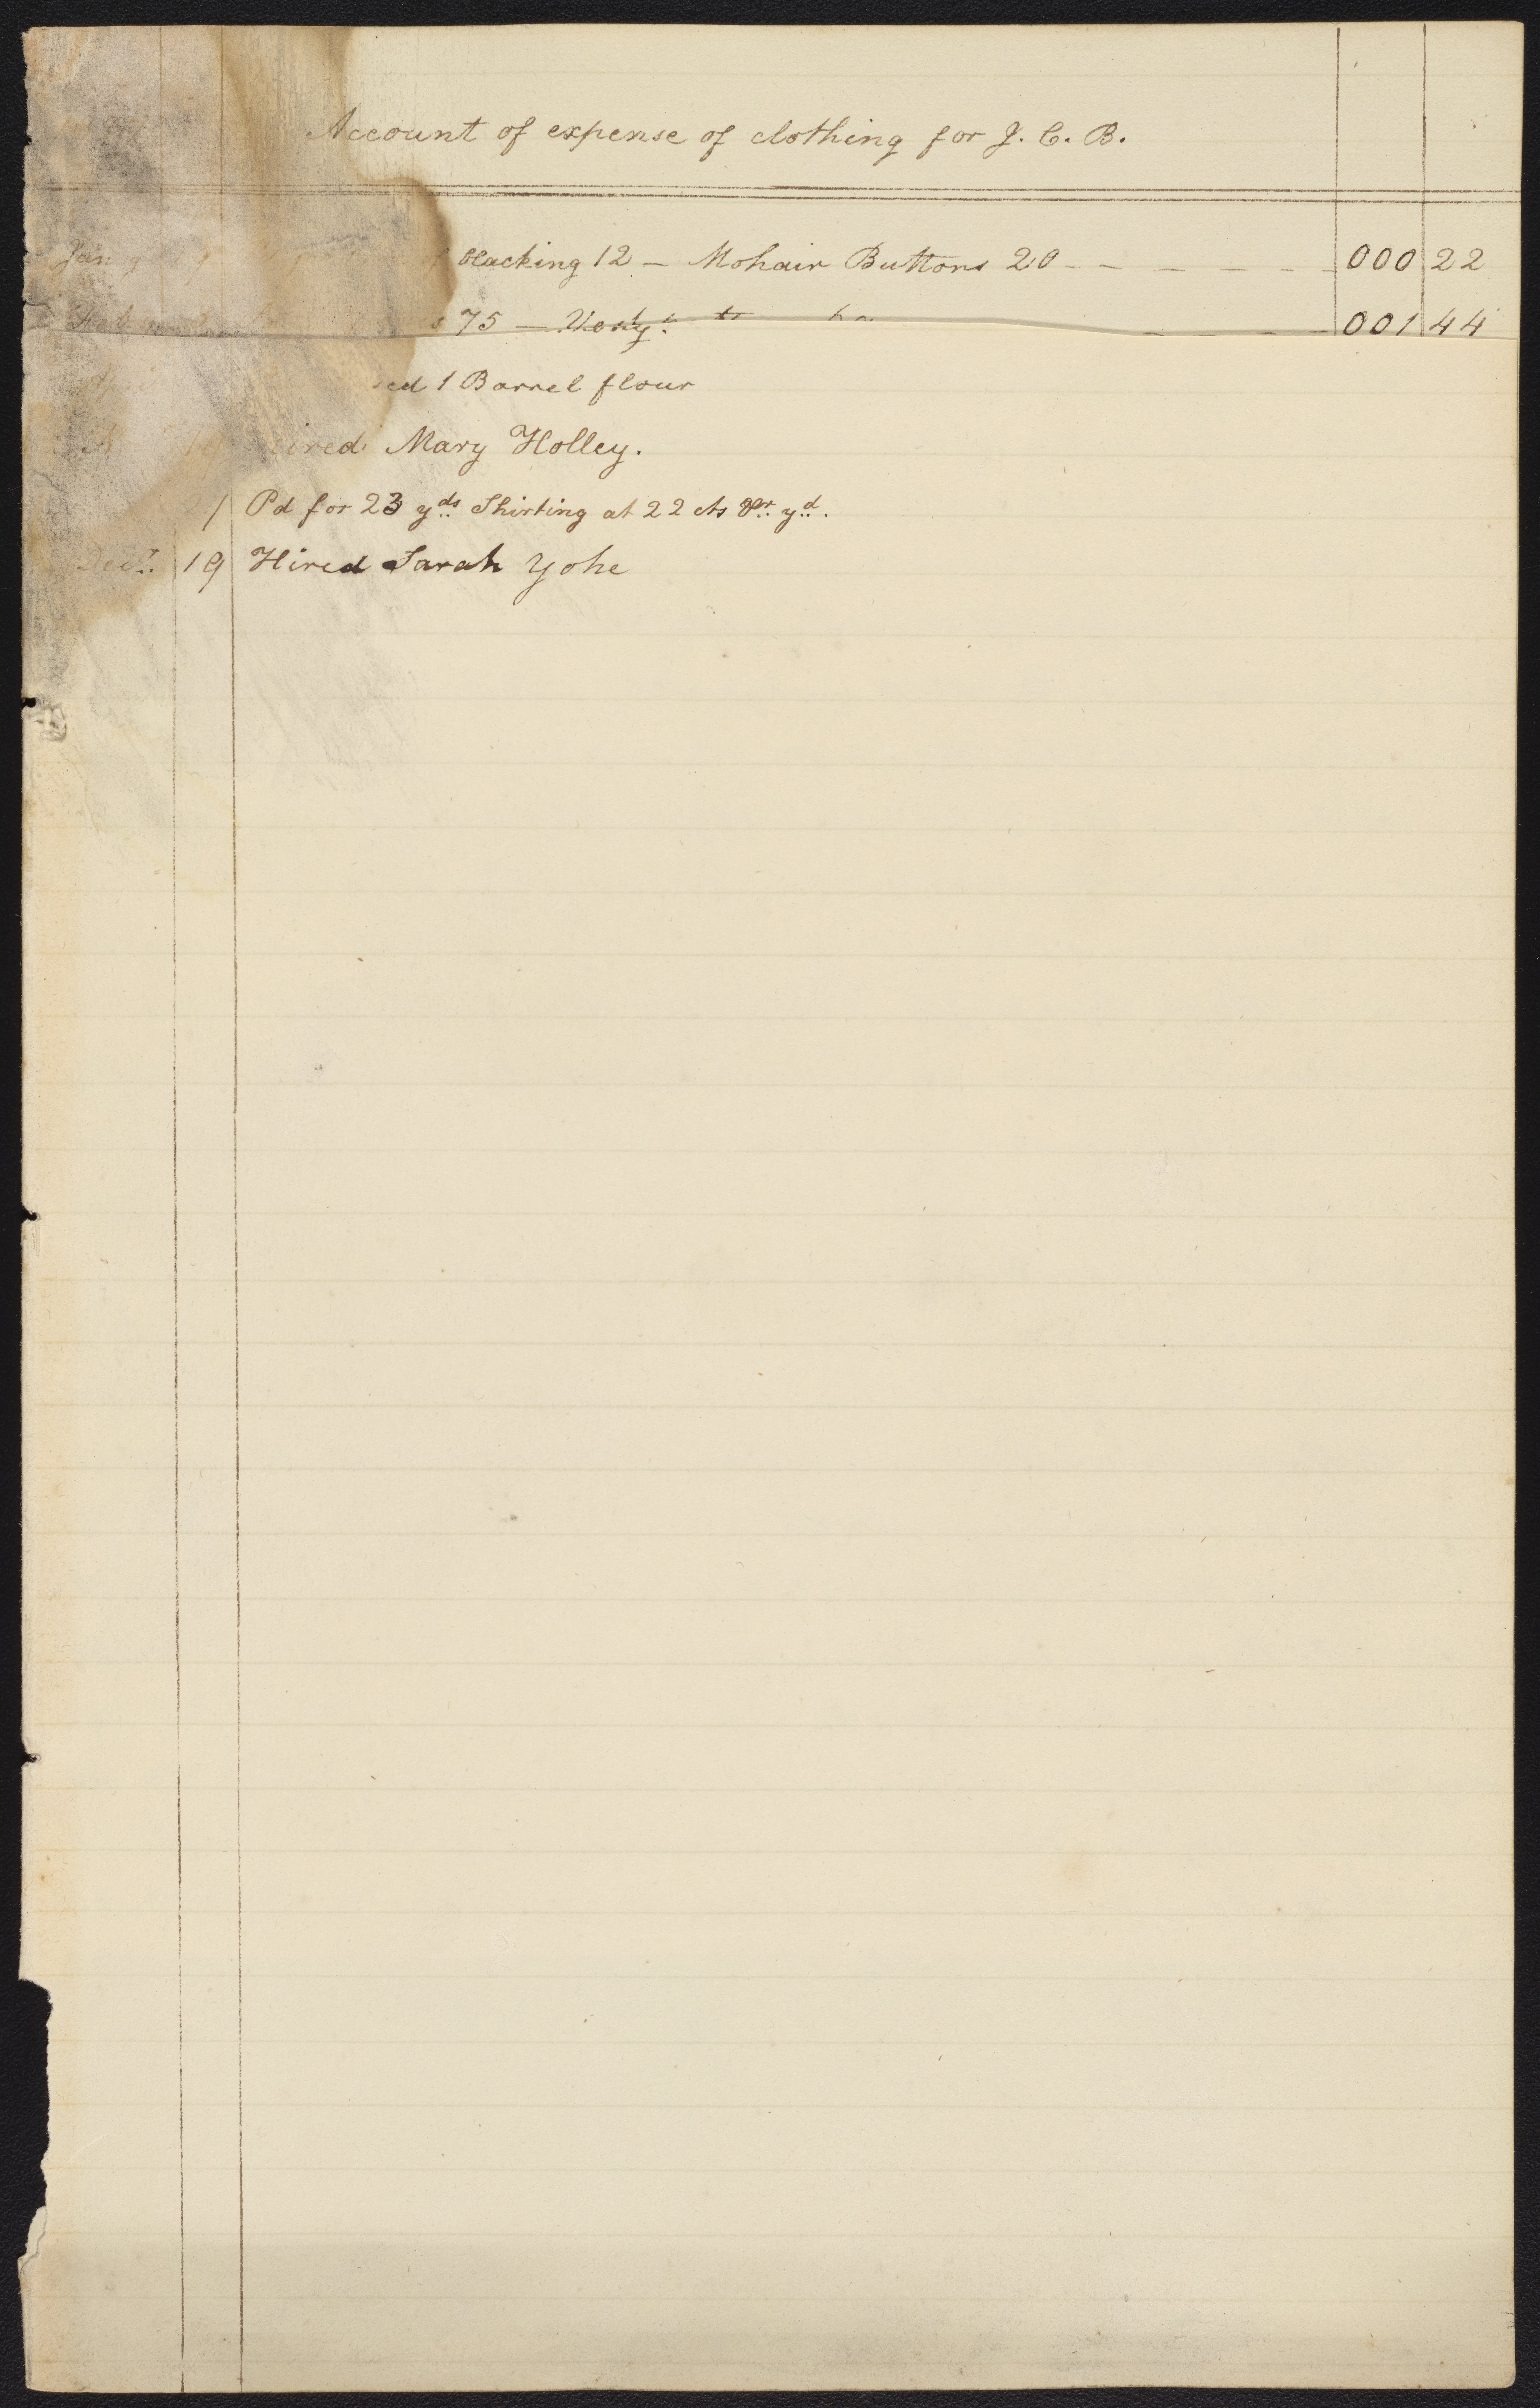 Account of expense of clothing for J. C. B.
Jan y blacking 12 — Mohair Buttons 20 - - - - - - 000 22
Feb 75 — 001 44
ed 1 Barrel flour
19 ired Mary Holley.
1 Pd for 23 yds Shirting at 22 cts pr yd.
Decr. 19 Hired Sarah Yohe